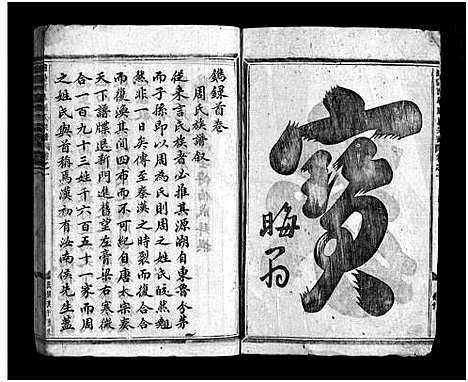 寶
晦翁
鐫錄首卷
周氏族譜敘
從來言氏族者必推其源溯自東魯分茅
而子孫即以周為氏則周之姓氏皎然魁
然非一日矣傳至秦漢之時裂而復合合
而復渙其間四布而不可紀自唐太宗奏
天下譜牒退新門進舊望左膏梁右寒微
合一百九十三姓千六百五十一家而周
之姓氏與首稱焉漢初有汝南侯先生蓋